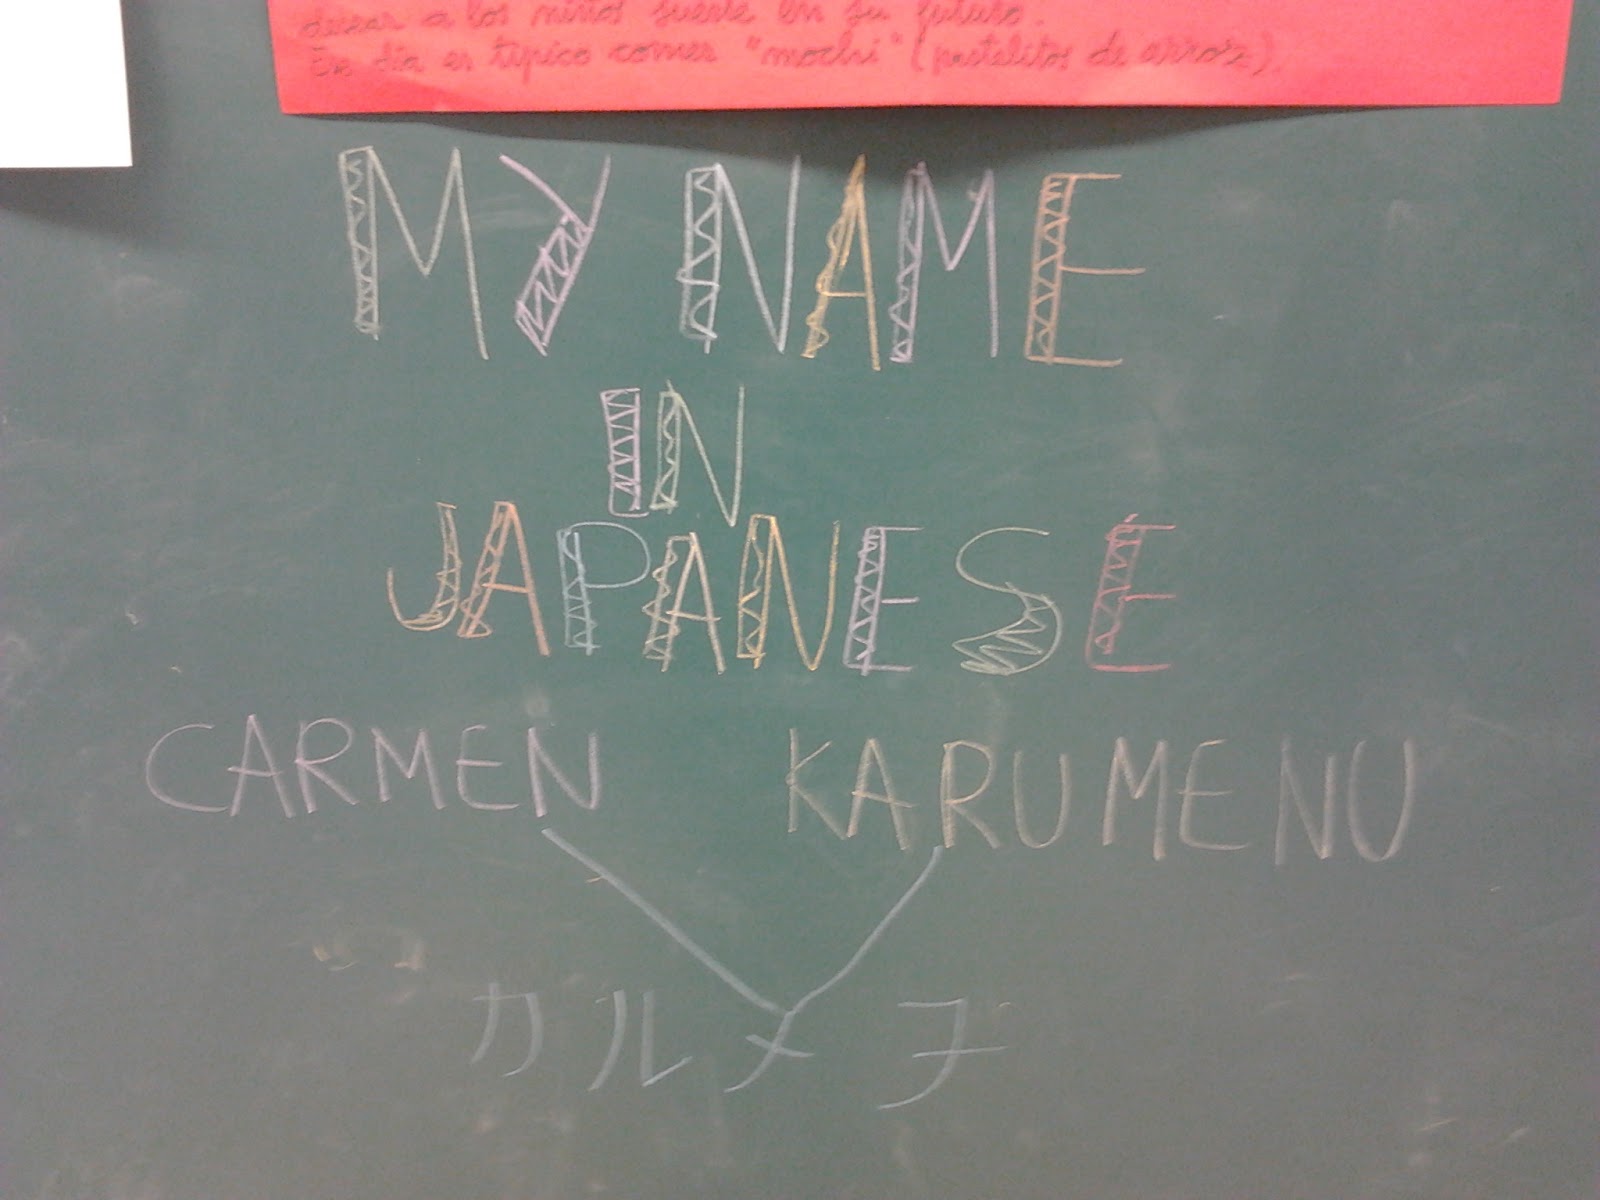 desear a los niños suerte en su futuro.
Ese día es típico comer "mochi" (pastelitos de arroz).
MY NAME
IN
JAPANESE
CARMEN KARUMENU
カルメヌ